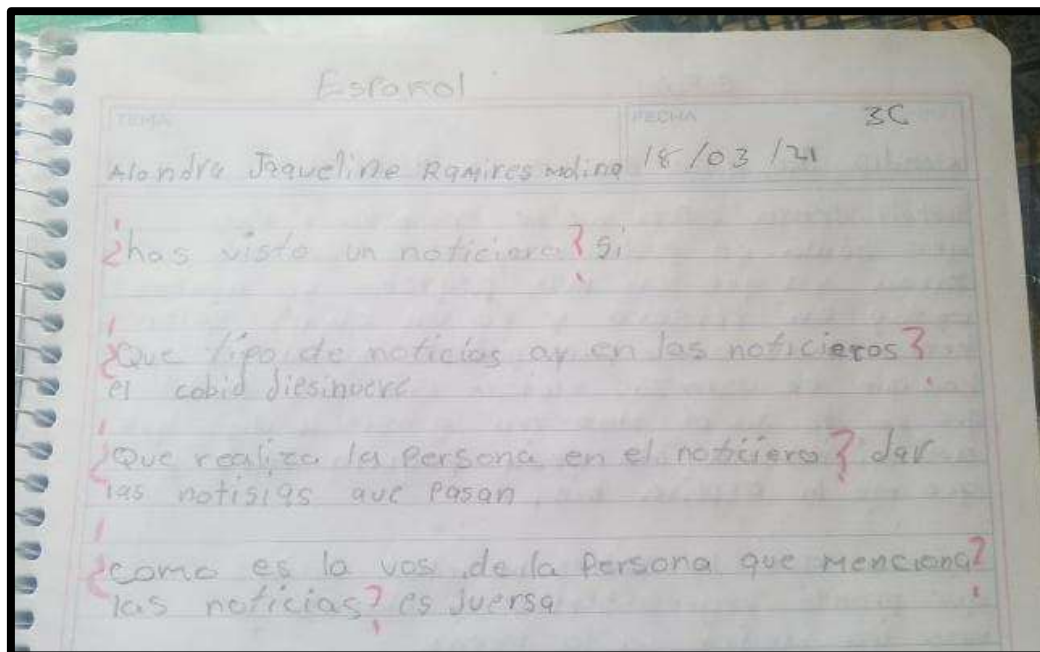 Español
TEMA FECHA 3C
Alondra Jaqueline Ramires Molina 18/03/21
¿has visto un noticiero? si
¿Que tipo de noticias ay en las noticieros?
el cobid diesinueve
¿Que realiza la persona en el noticiero? dar
las notisias que pasan
¿como es la vos de la persona que menciona?
las noticias? es juersa